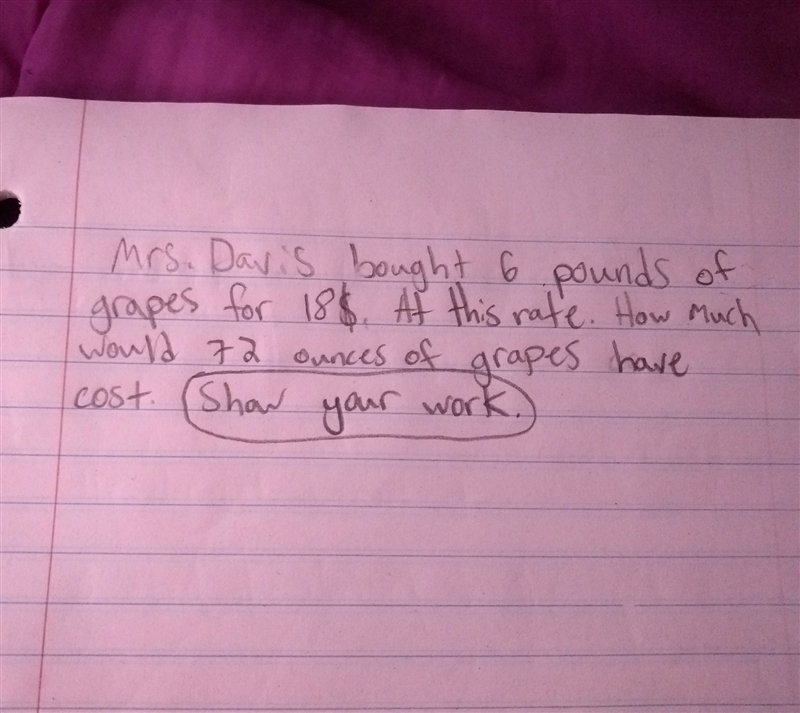 Mrs. Davis bought 6 pounds of
grapes for 18$. At this rate. How Much
would 72 ounces of grapes have
cost. Show your work.